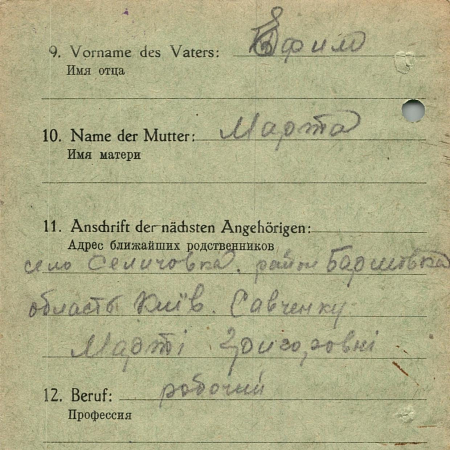 9. Vorname des Vaters: Ефим
Имя отца
10. Name der Mutter: Марта
Имя матери
11. Anschrift der nächsten Angehörigen:
Адрес ближайших родственников
село Селичовка. район Баришовка
область Київ. Савченку
Марті Григоровні
12. Beruf: робочий
Профессия